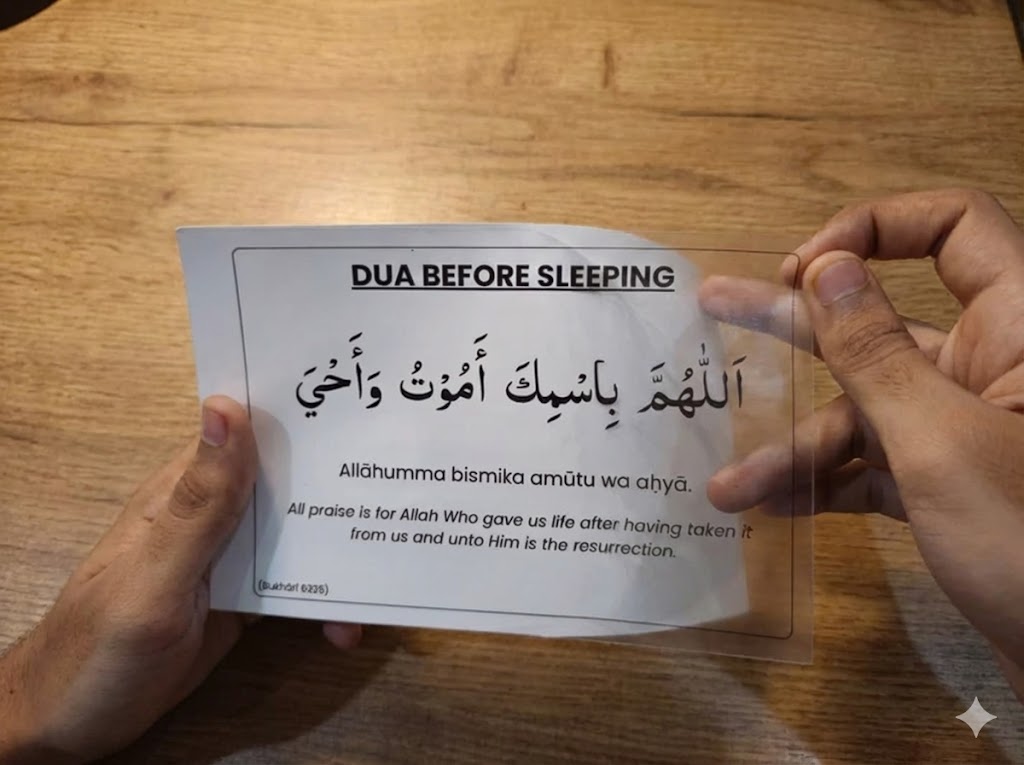 DUA BEFORE SLEEPING
اَللّٰهُمَّ بِاسْمِكَ أَمُوْتُ وَأَحْيَ
Allāhumma bismika amūtu wa aḥyā.
All praise is for Allah Who gave us life after having taken it
from us and unto Him is the resurrection.
(Bukhārī 6325)